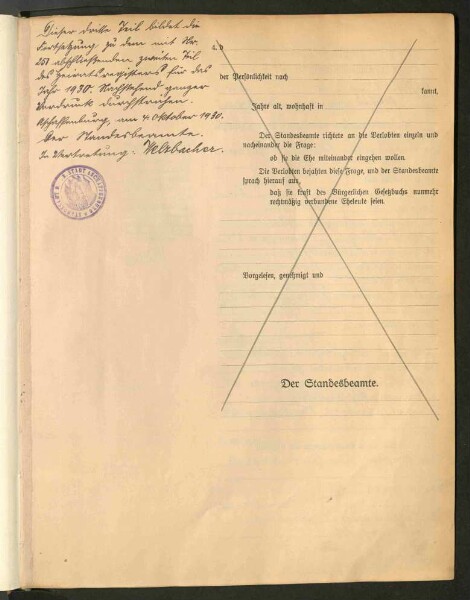 Dieser dritte Teil bildet die
Fortsetzung zu dem mit Nr.
251 abschließenden zweiten Teil
des Heiratsregisters für das
Jahr 1930. Nachstehend ganzer
Vordruck durchstrichen.
Aschaffenburg, am 4. Oktober 1930.
Der Standesbeamte.
In Vertretung: Welzbacher.
4. d
der Persönlichkeit nach
kannt,
Jahre alt, wohnhaft in
Der Standesbeamte richtete an die Verlobten einzeln und
nacheinander die Frage:
ob sie die Ehe miteinander eingehen wollen.
Die Verlobten bejahten diese Frage, und der Standesbeamte
sprach hierauf aus,
daß sie kraft des Bürgerlichen Gesetzbuchs nunmehr
rechtmäßig verbundene Eheleute seien.
Vorgelesen, genehmigt und
Der Standesbeamte.